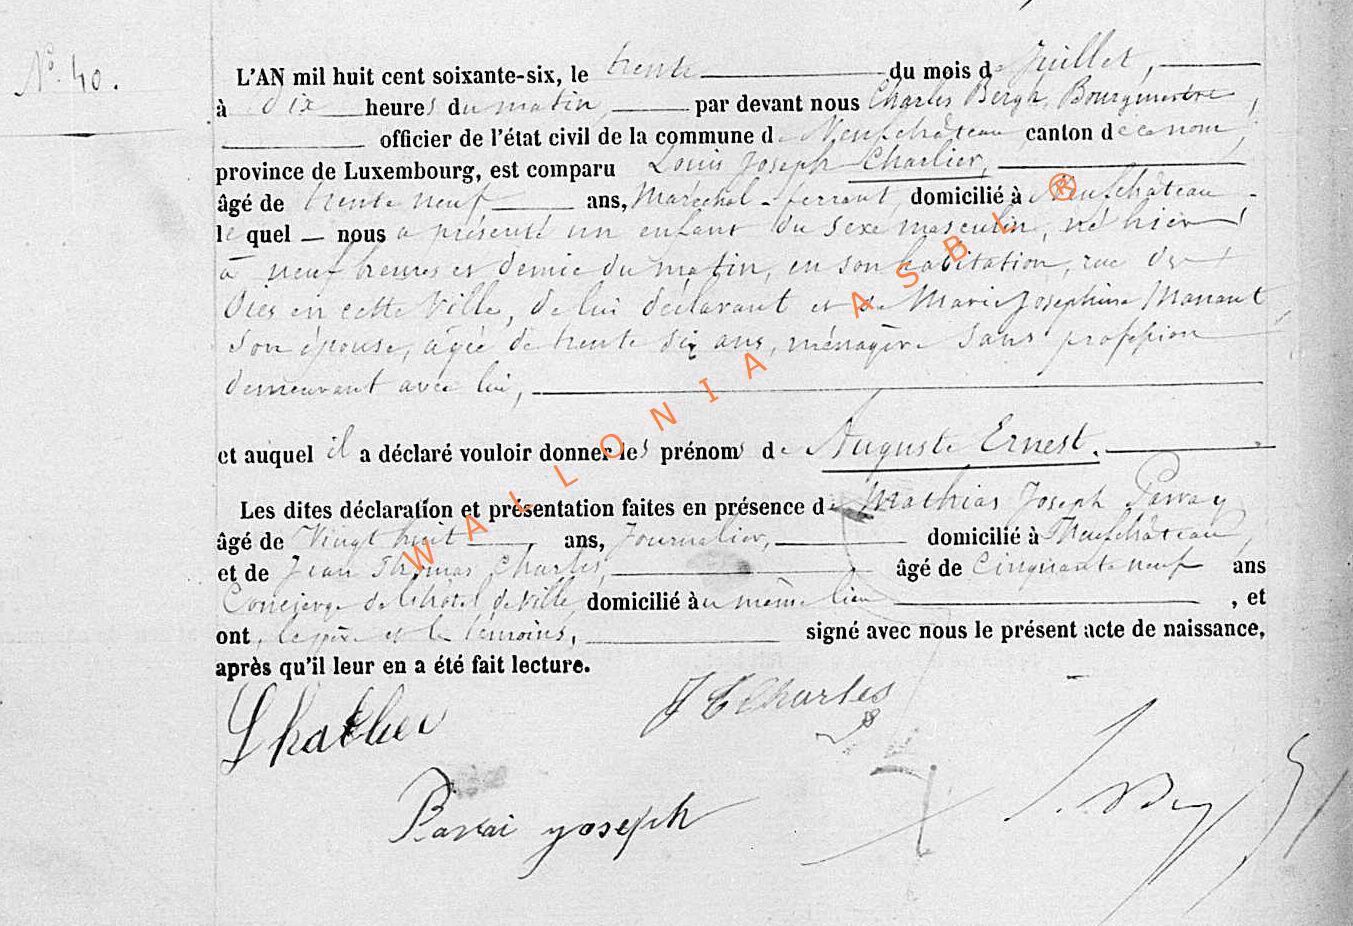 N° 40.
L'AN mil huit cent soixante-six, le trente du mois de Juillet,
à dix heures du matin, par devant nous Charles Bergh, Bourgmestre,
officier de l'état civil de la commune de Neufchâteau canton de ce nom,
province de Luxembourg, est comparu Louis Joseph Charlier,
âgé de trente neuf ans, Maréchal-ferrant, domicilié à Neufchâteau
le quel nous a présenté un enfant du sexe masculin, né hier
à neuf heures et demie du matin, en son habitation, rue des
Oies en cette Ville, de lui déclarant et de Marie Josephine Manant
son épouse, agée de trente six ans, ménagère sans profession
demeurant avec lui,
et auquel il a déclaré vouloir donner les prénoms de Auguste Ernest.
Les dites déclaration et présentation faites en présence de Mathias Joseph
âgé de Vingt huit ans, Journalier, domicilié à Neufchâteau,
et de Jean Thomas Charles, âgé de Cinquante neuf ans
Concierge de l'hôtel de Ville domicilié au même lieu , et
ont, le père et les témoins, signé avec nous le présent acte de naissance,
après qu'il leur en a été fait lecture.
Charlier
J T Charles
joseph
WALLONIA ASBL ®